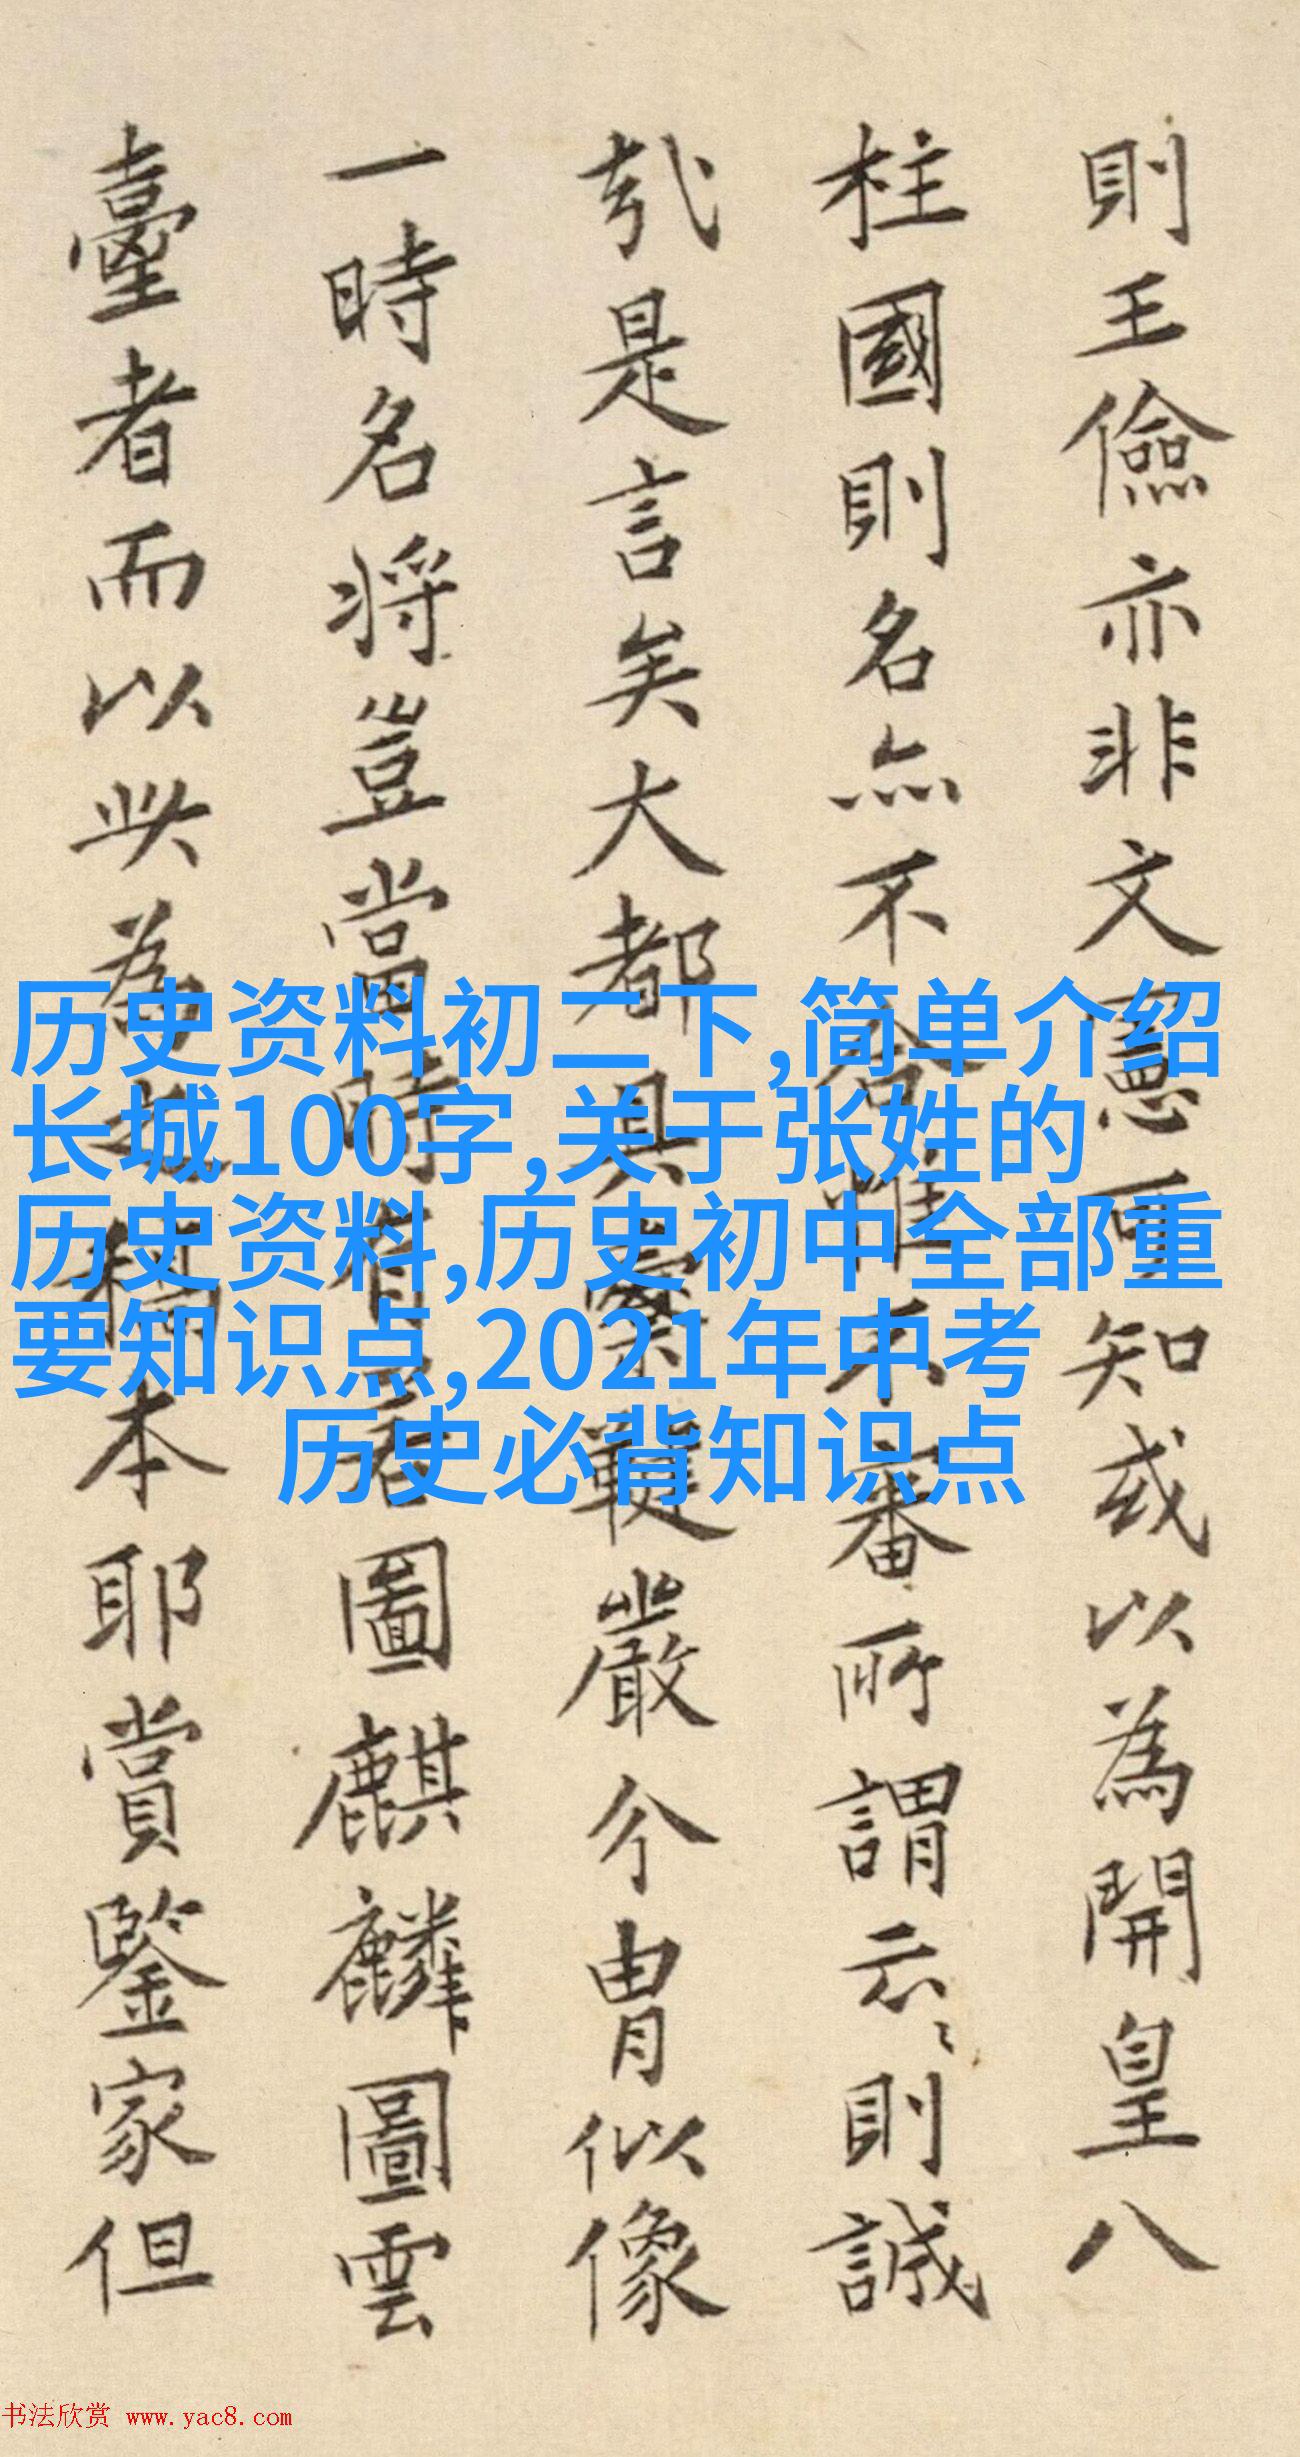 則王儉亦非文憲可知或以為開皇八
柱國則名亦不合雖不審所謂云〻則誠
哉是言矣大都具櫜鞬嚴介冑似像
一時名將豈當時有圖麒麟圖雲
臺者而以此為稿本耶賞鑒家但
历史资料初二下,简单介绍
长城100字,关于张姓的
历史资料,历史初中全部重
要知识点,2021年中考
历史必背知识点
书法欣赏 www.yac8.com